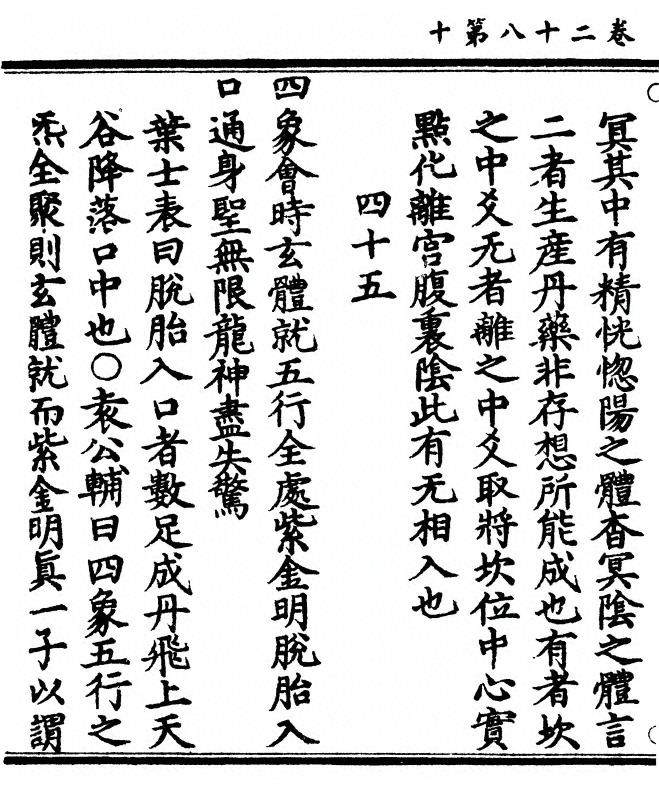 卷二十八第十
冥其中有精恍惚陽之體杳冥陰之體言
二者生產丹藥非存想所能成也有者坎
之中爻无者離之中爻取將坎位中心實
點化離宮腹裏陰此有无相入也
四十五
四象會時玄體就五行全處紫金明脫胎入
口通身聖無限龍神盡失驚
葉士表曰脫胎入口者數足成丹飛上天
谷降落口中也〇袁公輔曰四象五行之
炁全聚則玄體就而紫金明眞一子以謂